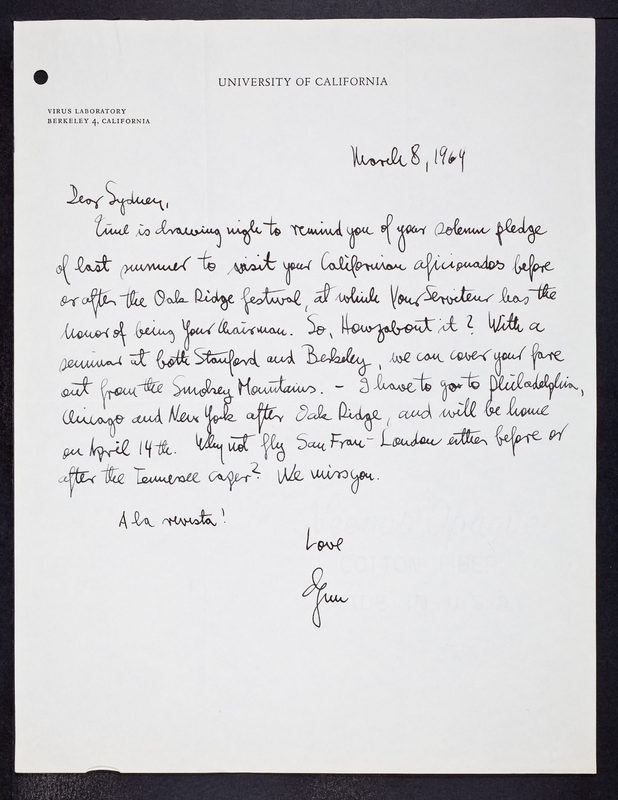 UNIVERSITY OF CALIFORNIA
VIRUS LABORATORY
BERKELEY 4, CALIFORNIA
March 8, 1964
Dear Sydney,
Time is drawing nigh to remind you of your solemn pledge
of last summer to visit your Californian aficionados before
or after the Oak Ridge festival, at which Your Serviteur has the
honor of being Your Chairman. So, Howzabout it? With a
seminar at both Stanford and Berkeley, we can cover your fare
out from the Smokey Mountains. – I have to go to Philadelphia,
Chicago and New York after Oak Ridge, and will be home
on April 14th. Why not fly San Fran – London either before or
after the Tennessee caper? We miss you.
A la revista!
Love